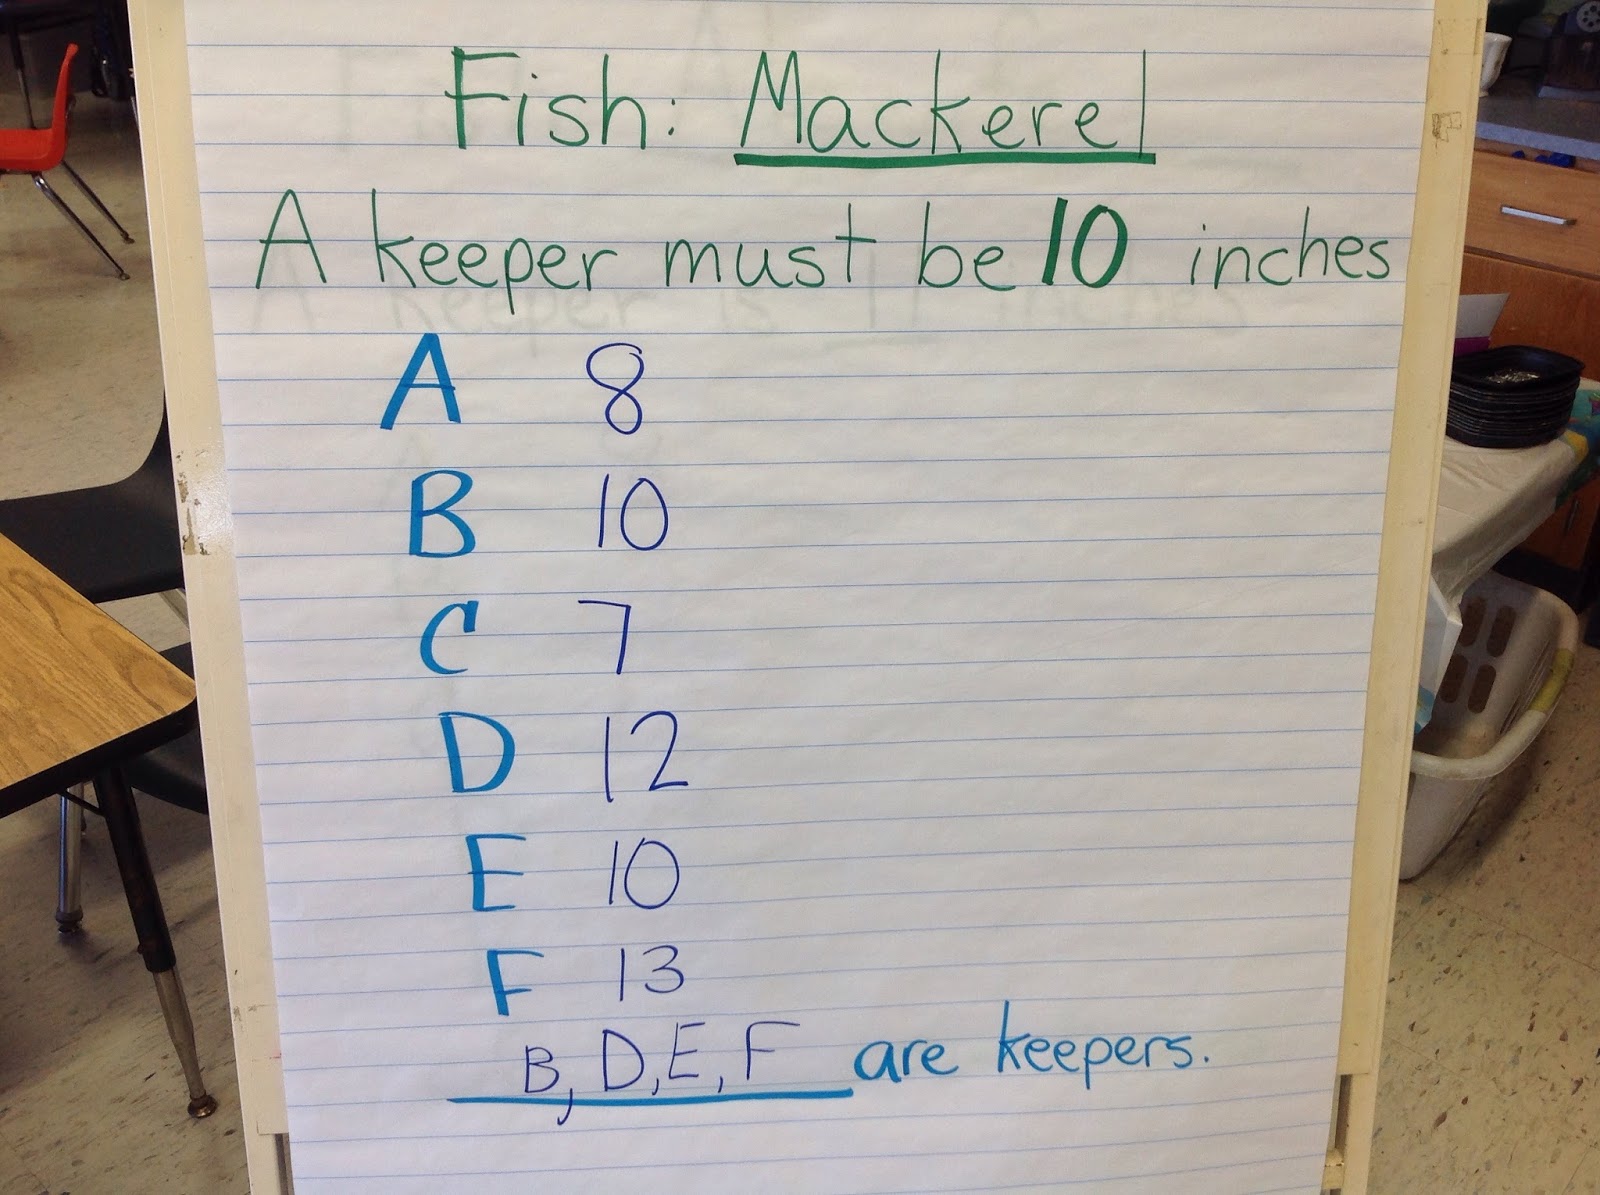 Fish: Mackerel
A keeper must be 10 inches
A 8
B 10
C 7
D 12
E 10
F 13
B, D, E, F are keepers.